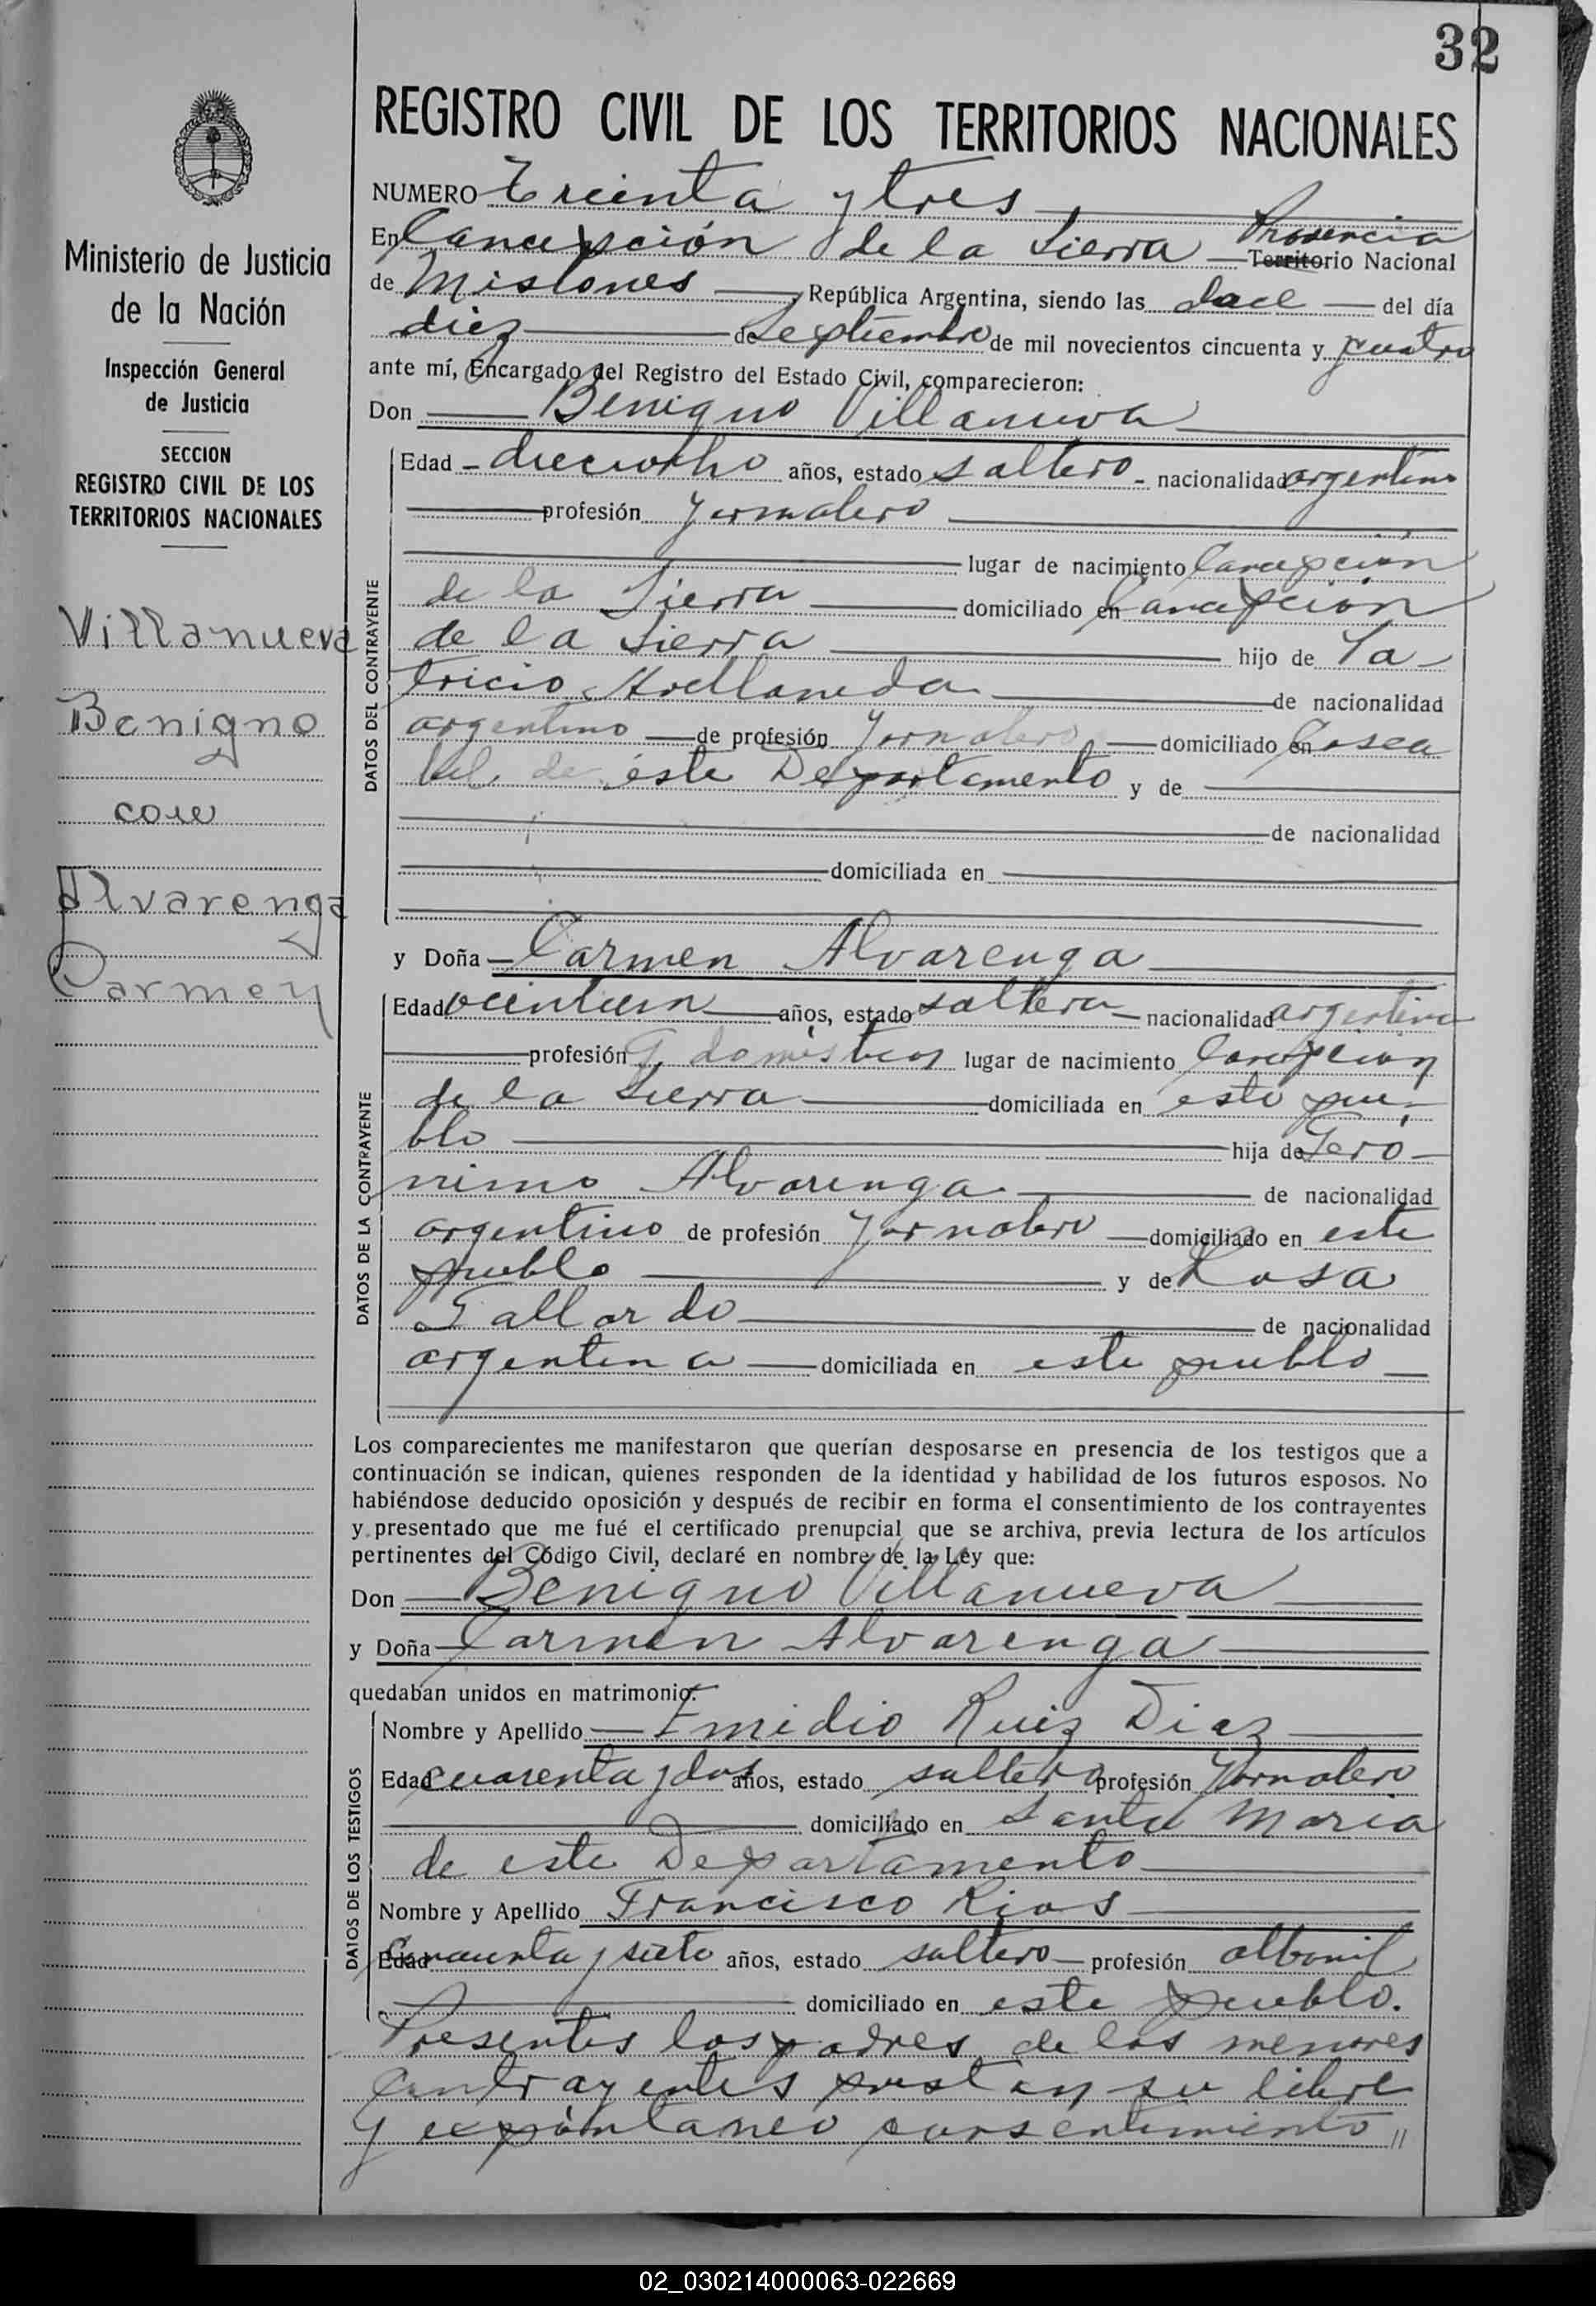 32
REGISTRO CIVIL DE LOS TERRITORIOS NACIONALES
Ministerio de Justicia
de la Nación
Inspección General
de Justicia
SECCION
REGISTRO CIVIL DE LOS
TERRITORIOS NACIONALES
Villanueva
Benigno
con
Alvarenga
Carmen
NUMERO Treinta y tres
En Concepción de la Sierra Provincia Territorio Nacional
de Misiones República Argentina, siendo las doce del día
diez de Septiembre de mil novecientos cincuenta y cuatro
ante mí, Encargado del Registro del Estado Civil, comparecieron:
Don Benigno Villanueva
DATOS DEL CONTRAYENTE
Edad dieciocho años, estado soltero nacionalidad argentino
profesión Jornalero
lugar de nacimiento Concepción
de la Sierra domiciliado en Concepción
de la Sierra hijo de Pa-
tricio Avellaneda de nacionalidad
argentino de profesión Jornalero domiciliado en
de éste Departamento y de
de nacionalidad
domiciliada en
y Doña Carmen Alvarenga
DATOS DE LA CONTRAYENTE
Edad veintiun años, estado soltera nacionalidad argentina
profesión Q. domésticos lugar de nacimiento Concepción
de la Sierra domiciliada en este pue-
blo hija de Jeró-
nimo Alvarenga de nacionalidad
argentino de profesión Jornalero domiciliado en este
pueblo y de Rosa
Gallardo de nacionalidad
argentina domiciliada en este pueblo
Los comparecientes me manifestaron que querían desposarse en presencia de los testigos que a
continuación se indican, quienes responden de la identidad y habilidad de los futuros esposos. No
habiéndose deducido oposición y después de recibir en forma el consentimiento de los contrayentes
y presentado que me fué el certificado prenupcial que se archiva, previa lectura de los artículos
pertinentes del Código Civil, declaré en nombre de la Ley que:
Don Benigno Villanueva
y Doña Carmen Alvarenga
quedaban unidos en matrimonio.
DATOS DE LOS TESTIGOS
Nombre y Apellido Emidio Ruiz Diaz
Edad cuarenta y dos años, estado soltero profesión Jornalero
domiciliado en Santa Maria
de este Departamento
Nombre y Apellido Francisco Rios
Edad y siete años, estado soltero profesión albañil
domiciliado en este pueblo.
Presentes los padres de los menores
contrayentes prestan su libre
y expontaneo consentimiento //
02_030214000063-022669